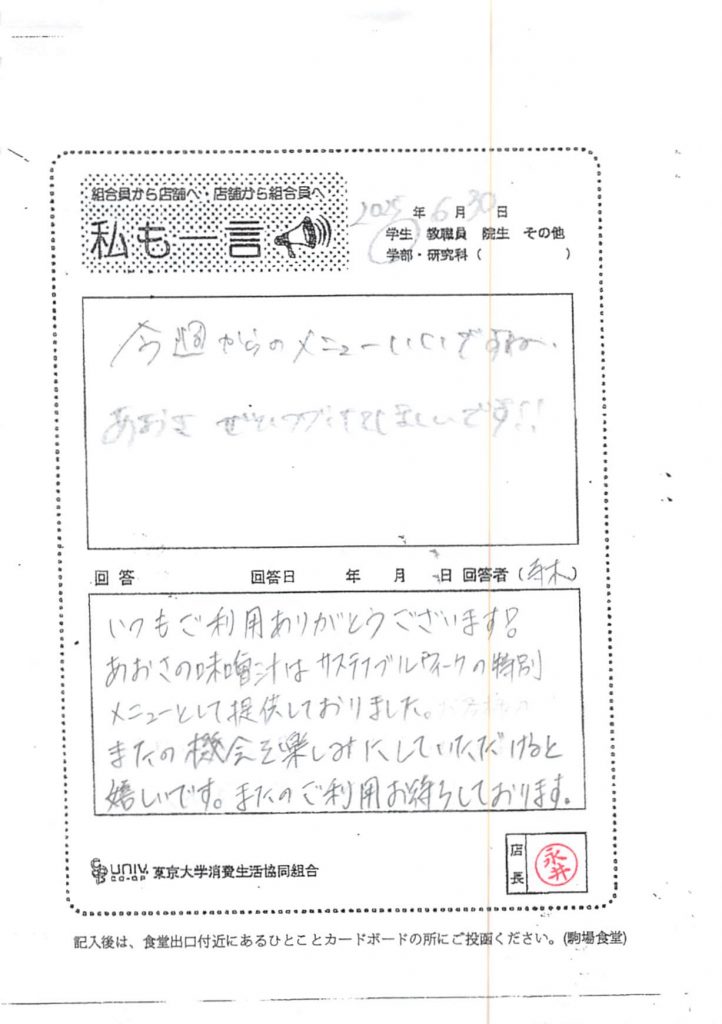 組合員から店舗へ・店舗から組合員へ
私も一言
2025年6月30日
学生 教職員 院生 その他
学部・研究科（ ）
今週からのメニューいいですね、
あおさ ぜひつづけてほしいです!!
回答 回答日 年 月 日 回答者（寺木）
いつもご利用ありがとうございます!
あおさの味噌汁はサステイナブルウィークの特別
メニューとして提供しておりました。
またの機会を楽しみにしていただけると
嬉しいです。またのご利用お待ちしております。
UNIV. CO-OP 東京大学消費生活協同組合
店長 永井
記入後は、食堂出口付近にあるひとことカードボードの所にご投函ください。(駒場食堂)